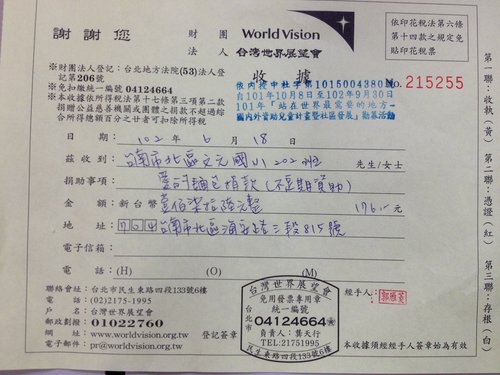 謝謝您
財團法人
World Vision
台灣世界展望會
依印花稅法第六條
第十四款之規定免
貼印花稅票
※財團法人登記:台北地方法院(53)法人登
記第206號
※免扣繳統一編號 04124664
※本收據依所得稅法十七條第三項第二款
捐贈公益慈善機關或團體之捐款不超過綜
合所得總額百分之廿者可扣除所得稅
收據
No. 215255
依內授中社字第1015004380號
自101年10月8日至102年9月30日
101年「站在世界最需要的地方-
國內外資助兒童計畫暨社區發展」勸募活動
日期: 102年6月18日
茲收到: 台南市北區文元國小202班 先生/女士
捐助事項: 愛的麵包捐款(不定期資助)
金額: 新台幣 壹佰柒拾陸元整 176.-元
地址: 704台南市北區海安路三段815號
電子信箱:
電話: (H) (O) (M)
聯絡會址:台北市民生東路四段133號6樓
電話:(02)2175-1995
戶名:台灣世界展望會
郵政劃撥:01022760
網址:www.worldvision.org.tw
電子郵件:pr@worldvision.org.tw
登記簽章
台灣世界展望會
免用發票專用章
統一編號
台北市
04124664
負責人:龔天行
TEL:21751995
民生東路四段133號6樓
經手人:
本收據須經經手人簽章始為有效
第一聯:收執(黃)
第二聯:憑證(紅)
第三聯:存根(白)